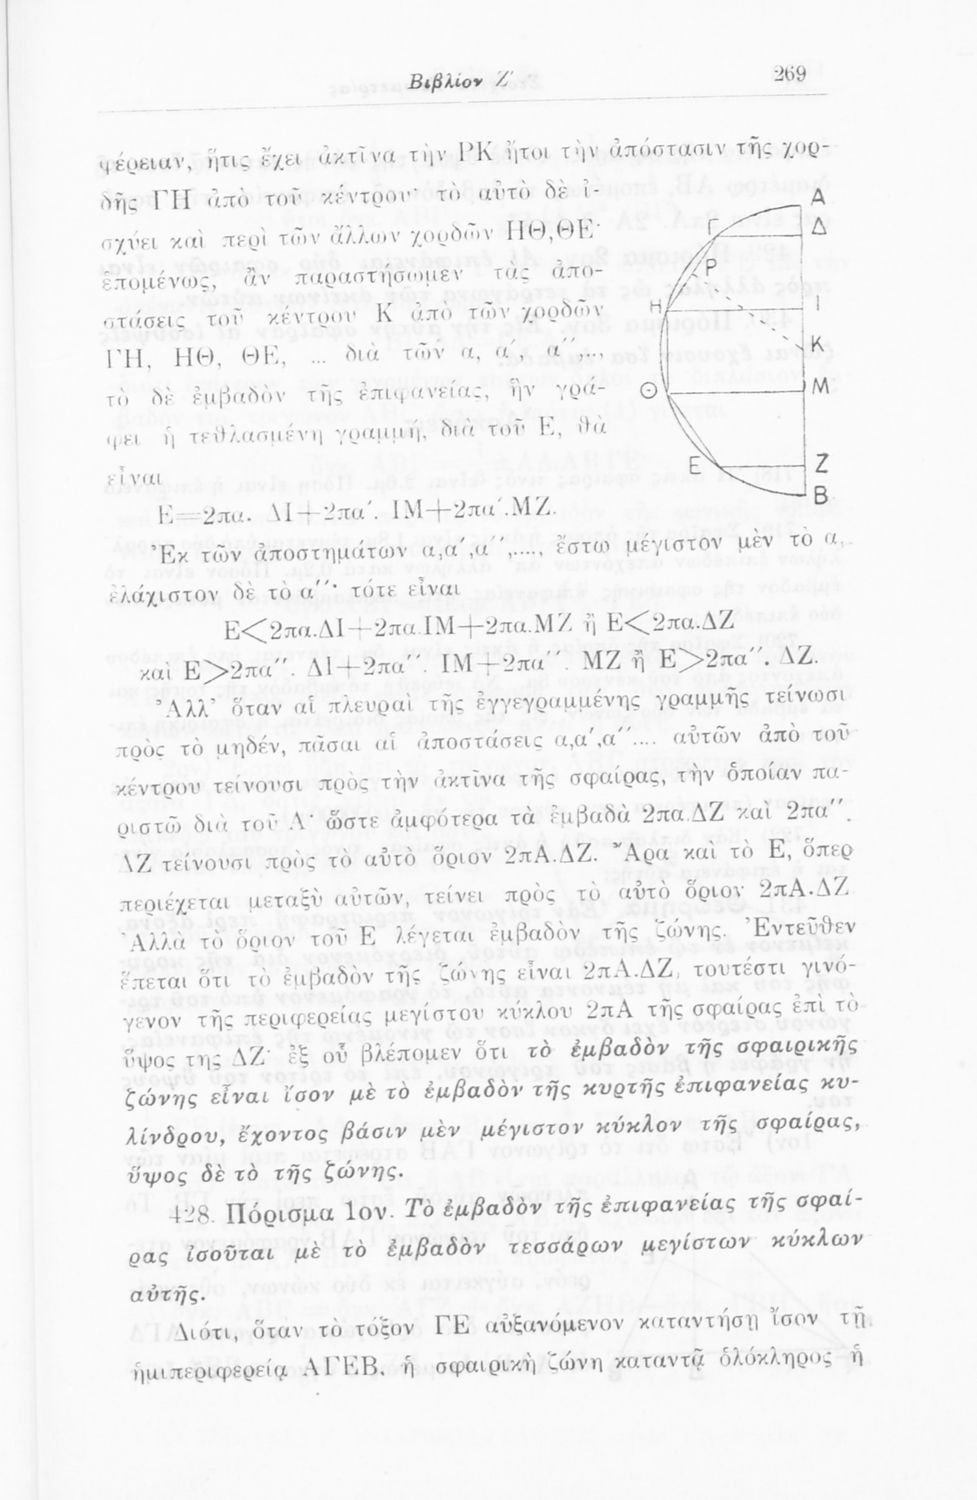 Βιβλίον Ζ΄
269
φέρειαν, ἥτις ἔχει ἀκτῖνα τὴν ΡΚ ἤτοι τὴν ἀπόστασιν τῆς χορ-
δῆς ΓΗ ἀπὸ τοῦ κέντρου· τὸ αὐτὸ δὲ ἰ-
σχύει καὶ περὶ τῶν ἄλλων χορδῶν ΗΘ,ΘΕ·
ἑπομένως, ἂν παραστήσωμεν τὰς ἀπο-
στάσεις τοῦ κέντρου Κ ἀπὸ τῶν χορδῶν
ΓΗ, ΗΘ, ΘΕ, ... διὰ τῶν α, α΄, α΄΄,...,
τὸ δὲ ἐμβαδὸν τῆς ἐπιφανείας, ἣν γρά-
φει ἡ τεθλασμένη γραμμή, διὰ τοῦ Ε, θὰ
εἶναι
Α
Γ
Δ
Ρ
Η
Ι
Κ
Θ
Μ
Ε
Ζ
Β
Ε=2πα. ΔΙ+2πα΄. ΙΜ+2πα΄.ΜΖ.
Ἐκ τῶν ἀποστημάτων α,α΄,α΄΄,....., ἔστω μέγιστον μὲν τὸ α,
ἐλάχιστον δὲ τὸ α΄΄· τότε εἶναι
Ε<2πα.ΔΙ+2πα.ΙΜ+2πα.ΜΖ ἢ Ε<2πα.ΔΖ
καὶ Ε>2πα΄΄. ΔΙ+2πα΄΄. ΙΜ+2πα΄΄. ΜΖ ἢ Ε>2πα΄΄. ΔΖ.
Ἀλλ' ὅταν αἱ πλευραὶ τῆς ἐγγεγραμμένης γραμμῆς τείνωσι
πρὸς τὸ μηδέν, πᾶσαι αἱ ἀποστάσεις α,α΄,α΄΄.... αὐτῶν ἀπὸ τοῦ
κέντρου τείνουσι πρὸς τὴν ἀκτῖνα τῆς σφαίρας, τὴν ὁποίαν πα-
ριστῶ διὰ τοῦ Α· ὥστε ἀμφότερα τὰ ἐμβαδὰ 2πα.ΔΖ καὶ 2πα΄΄.
ΔΖ τείνουσι πρὸς τὸ αὐτὸ ὅριον 2πΑ.ΔΖ. Ἄρα καὶ τὸ Ε, ὅπερ
περιέχεται μεταξὺ αὐτῶν, τείνει πρὸς τὸ αὐτὸ ὅριον 2πΑ.ΔΖ
Ἀλλὰ τὸ ὅριον τοῦ Ε λέγεται ἐμβαδὸν τῆς ζώνης. Ἐντεῦθεν
ἕπεται ὅτι τὸ ἐμβαδὸν τῆς ζώνης εἶναι 2πΑ.ΔΖ, τουτέστι γινό-
γενον τῆς περιφερείας μεγίστου κύκλου 2πΑ τῆς σφαίρας ἐπὶ τὸ
ὕψος της ΔΖ· ἐξ οὗ βλέπομεν ὅτι τὸ ἐμβαδὸν τῆς σφαιρικῆς
ζώνης εἶναι ἴσον μὲ τὸ ἐμβαδὸν τῆς κυρτῆς ἐπιφανείας κυ-
λίνδρου, ἔχοντος βάσιν μὲν μέγιστον κύκλον τῆς σφαίρας,
ὕψος δὲ τὸ τῆς ζώνης.
428. Πόρισμα 1ον. Τὸ ἐμβαδὸν τῆς ἐπιφανείας τῆς σφαί-
ρας ἰσοῦται μὲ τὸ ἐμβαδὸν τεσσάρων μεγίστων κύκλων
αὐτῆς.
Διότι, ὅταν τὸ τόξον ΓΕ αὐξανόμενον καταντήσῃ ἴσον τῇ
ἡμιπεριφερείᾳ ΑΓΕΒ, ἡ σφαιρικὴ ζώνη καταντᾷ ὁλόκληρος ἡ